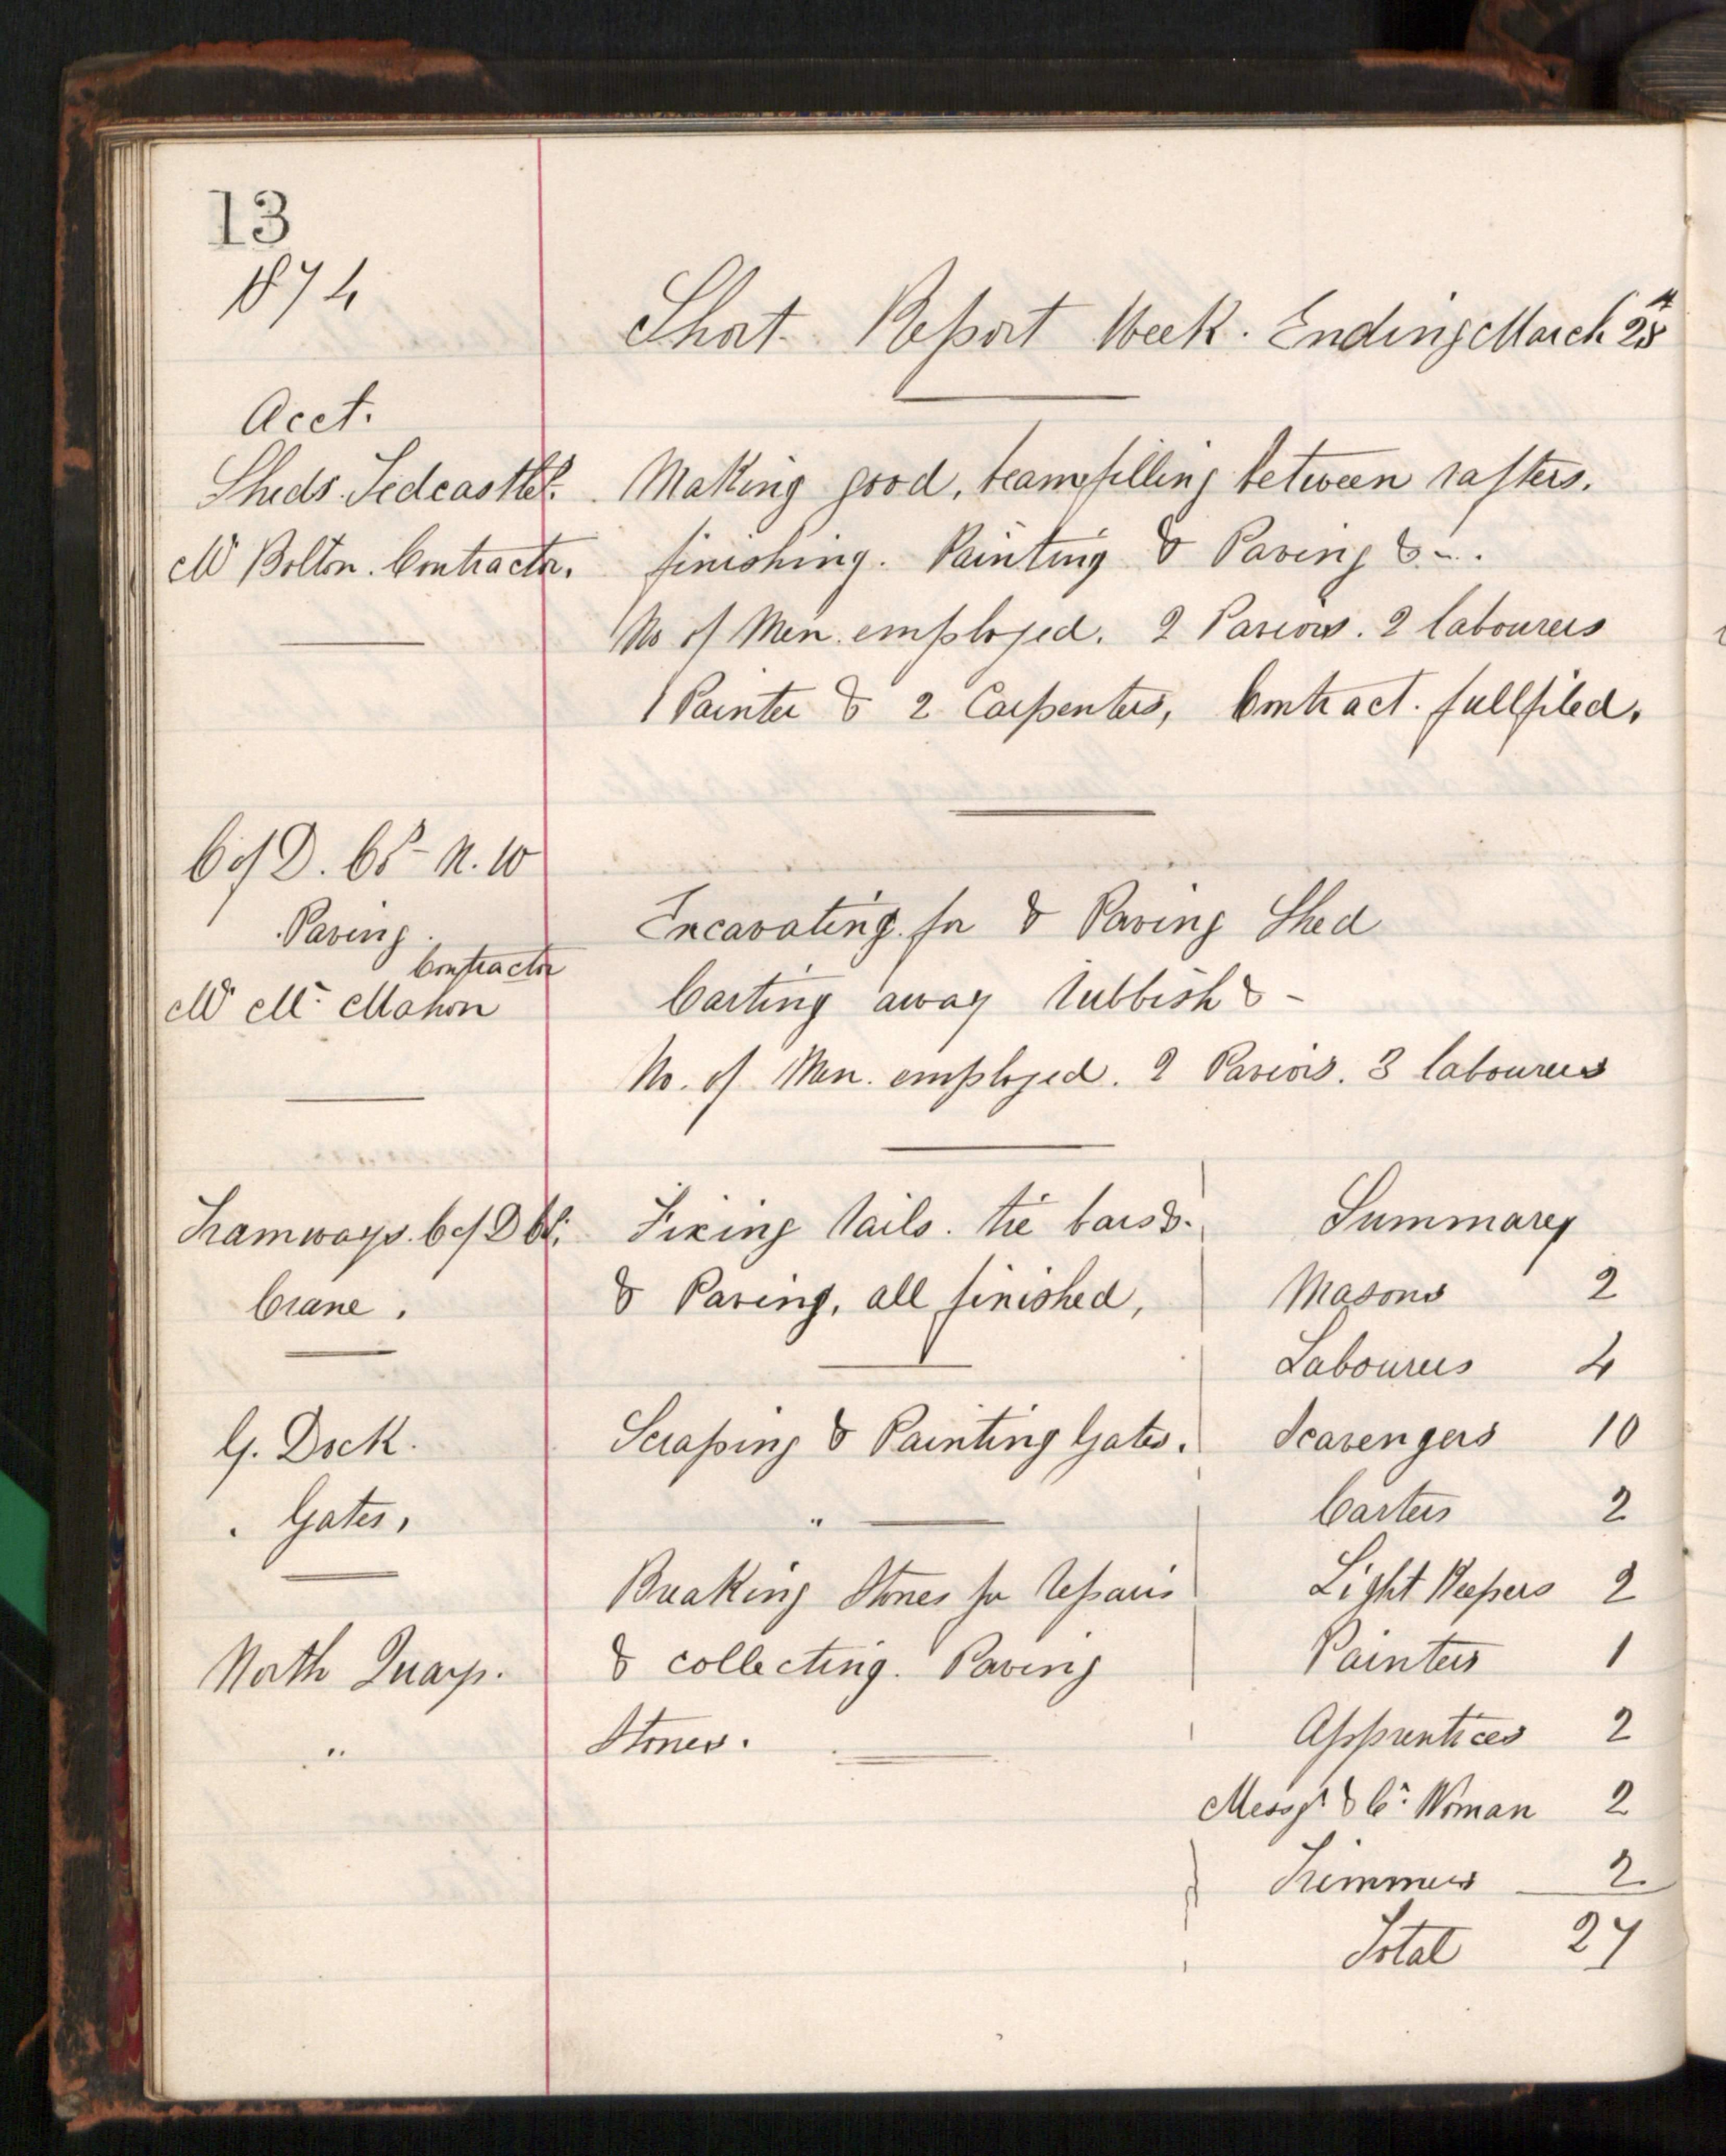 13
1874
Short Report Week. Ending March 28th
Acct.
Sheds. Tedcastle
Making good, beamfilling between rafters.
Mr Bolton. Contractor.
finishing. Painting & Paving &-.
No of Men employed. 2 Paviors. 2 labourers
1 Painter & 2 Carpenters, Contract. fullfiled,
C of D. Co N. W
Paving.
Excavating for & Paving Shed
Contractor
Mr Mc Mahon
Carting away Rubbish & -
No. of Men. employed. 2 Paviors. 3 labourers
Tramways. C of D Co.
Fixing Rails. tie bars &.
Summary
Crane.
& Paving, all finished,
Masons 2
Labourers 4
G. Dock.
Scraping & Painting Gates.
Scavengers 10
Gates,
"
Carters 2
Breaking Stones for Repairs
Light Keepers 2
North Quays.
& collecting. Paving
Painters 1
"
Stones.
Apprentices 2
Messgr & Cr. Woman 2
Trimmers 2
Total 27